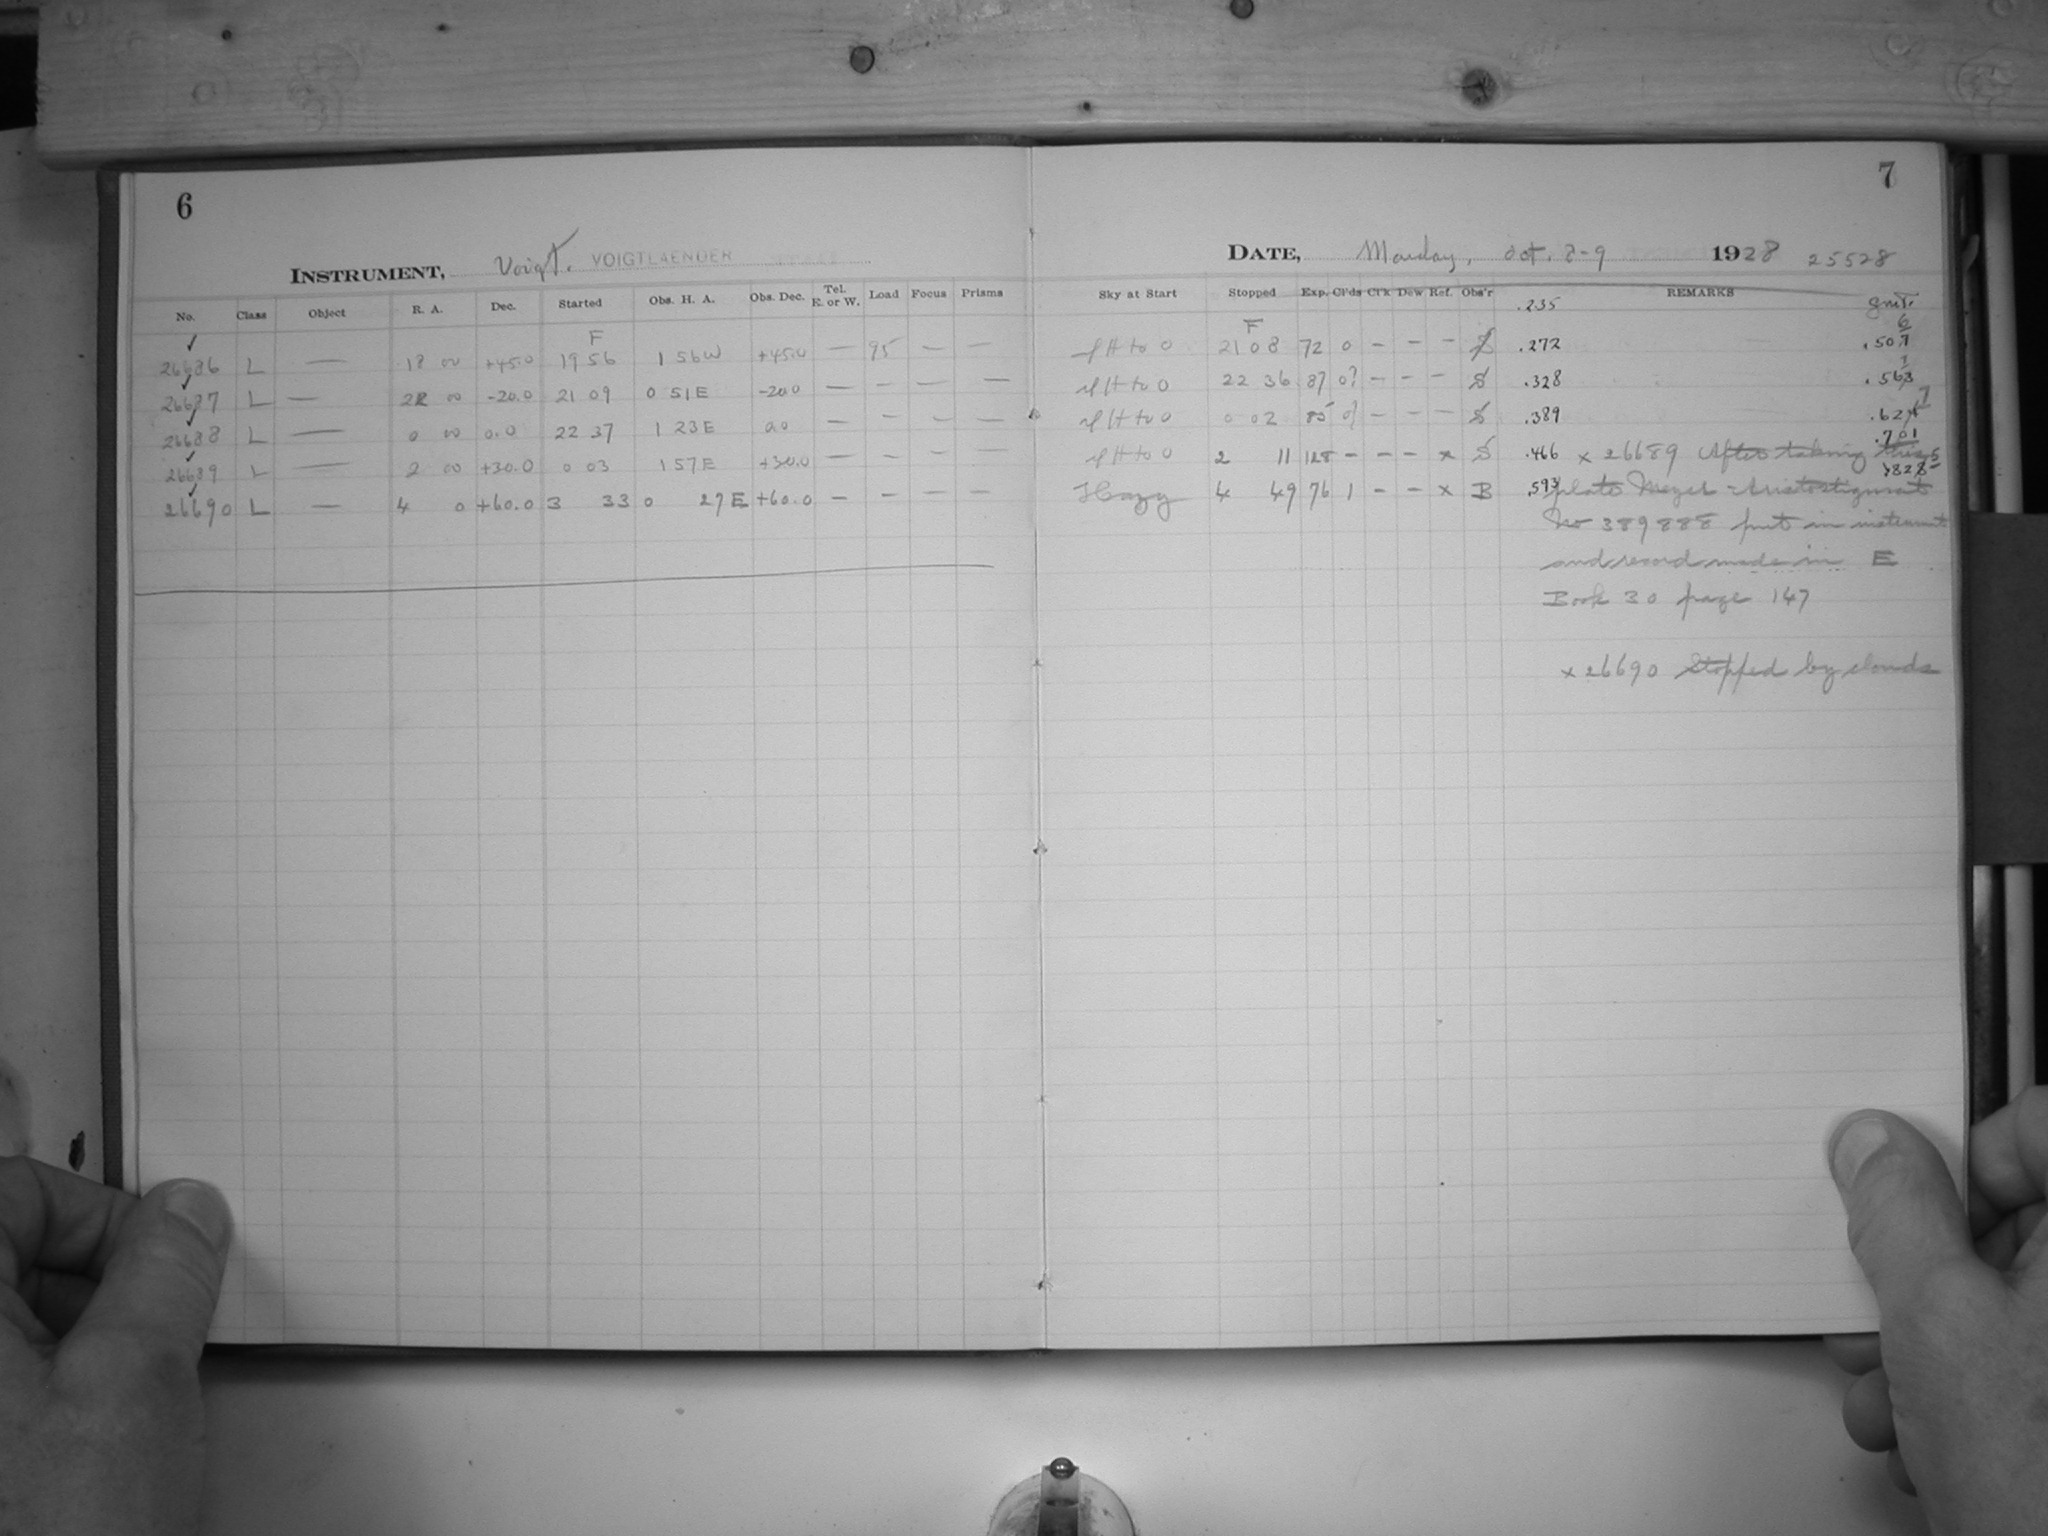 6
INSTRUMENT, Voigt. VOIGTLAENDER
No. Class Object R. A. Dec. Started Obs. H. A. Obs. Dec. Tel. E. or W. Load Focus Prisms
F
26686 L — 18 00 +45.0 19 56 1 56W +45.0 — 95 — —
26687 L — 22 00 -20.0 21 09 0 51E -20.0 — — — —
26688 L — 0 00 0.0 22 37 1 23E 0.0 — — — —
26689 L — 2 00 +30.0 0 03 1 57E +30.0 — — — —
26690 L — 4 0 +60.0 3 33 0 27E +60.0 — — — —
7
DATE, Monday, Oct. 8-9 1928 25528
Sky at Start Stopped Exp. Cl'ds Cl'k Dew Ref. Obs'r REMARKS
.235 GMT.
F
H to 0 21 08 72 0 – – – S .272 .507 6
H to 0 22 36 87 0? – – – S .328 .563
H to 0 0 02 85 0? – – – S .389 .624
.701
H to 0 2 11 128 – – – x S .466 x 26689 After taking this
.828
Hazy 4 49 76 1 – – x B .593 plate Meyer-Aristostigmat
No 389888 put in instrument
and record made in E
Book 30 page 147
x 26690 Stopped by clouds